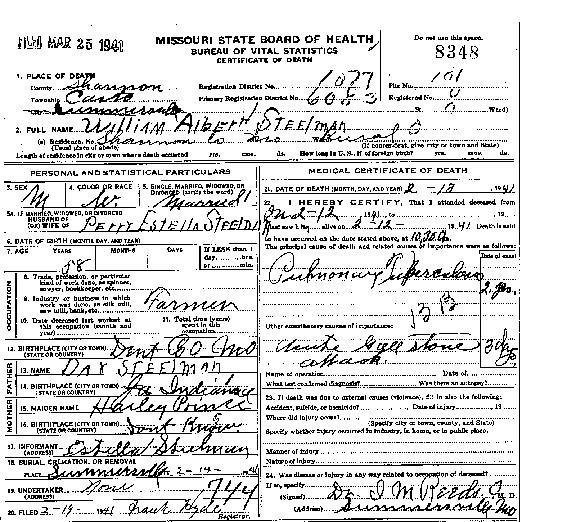 FILED MAR 25 1941
MISSOURI STATE BOARD OF HEALTH
BUREAU OF VITAL STATISTICS
CERTIFICATE OF DEATH
Do not use this space.
8348
1. PLACE OF DEATH
County Shannon Registration District No. 1077 File No. 101
Township Primary Registration District No. 6083 Registered No.
Summersville No. St. Ward)
2. FULL NAME William Albert Steelman
(a) Residence. No. Shannon Co Mo
(Usual place of abode) (If nonresident, give city or town and State)
Length of residence in city or town where death occurred yrs. mos. ds. How long in U. S., if of foreign birth? yrs. mos. ds.
PERSONAL AND STATISTICAL PARTICULARS
3. SEX M
4. COLOR OR RACE W.
5. SINGLE, MARRIED, WIDOWED, OR DIVORCED (write the word) Married
5A. IF MARRIED, WIDOWED, OR DIVORCED
HUSBAND OF
(OR) WIFE OF Perry Estella Steelman
6. DATE OF BIRTH (MONTH, DAY, AND YEAR)
7. AGE YEARS MONTHS DAYS IF LESS than 1 day, ....hrs. or ....min.
58
OCCUPATION
8. Trade, profession, or particular kind of work done, as spinner, sawyer, bookkeeper, etc.
9. Industry or business in which work was done, as silk mill, saw mill, bank, etc. Farmer
10. Date deceased last worked at this occupation (month and year)
11. Total time (years) spent in this occupation
12. BIRTHPLACE (CITY OR TOWN) (STATE OR COUNTRY) Dent Co Mo
FATHER
13. NAME Dax Steelman
14. BIRTHPLACE (CITY OR TOWN) (STATE OR COUNTRY) Indiana
MOTHER
15. MAIDEN NAME Harley Prince
16. BIRTHPLACE (CITY OR TOWN) (STATE OR COUNTRY) Dont Know
17. INFORMANT Estella Steelman
(ADDRESS)
18. BURIAL, CREMATION, OR REMOVAL
PLACE Summersville DATE 2-14-41
19. UNDERTAKER None 744
(ADDRESS)
20. FILED 3-19-41 Frank Hyde
Registrar
MEDICAL CERTIFICATE OF DEATH
21. DATE OF DEATH (MONTH, DAY, AND YEAR) 2-12 1941
22. I HEREBY CERTIFY, That I attended deceased from
2-12 1941, to , 19
I last saw h alive on 2-12- 1941 Death is said
to have occurred on the date stated above, at 10:30 a.m.
The principal cause of death and related causes of importance were as follows:
Date of onset
Pulmonary Tuberculosis 2 yrs.
1313
Other contributory causes of importance:
Acute Gall stone attack 3 days
Name of operation Date of
What test confirmed diagnosis? Was there an autopsy?
23. If death was due to external causes (violence), fill in also the following:
Accident, suicide, or homicide? Date of injury , 19
Where did injury occur?
(Specify city or town, county, and State)
Specify whether injury occurred in industry, in home, or in public place.
Manner of injury
Nature of injury
24. Was disease or injury in any way related to occupation of deceased?
If so, specify
(Signed) Dr. J M Reeds, M. D.
(Address) Summersville Mo